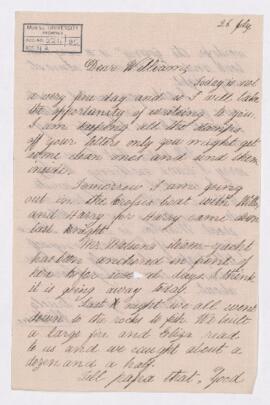 McGILL UNIVERSITY
ARCHIVES
ACC. NO.
REF.
26 July
Dear William
Today is not
a very fine day and so I will take
the opportunity of writing to you.
I am keeping all the stamps
off your letters only you might get
some clean ones and send them
inside.
Tomorrow I am going
out in the boat with Willy
and Harry for Harry came down
last night
Mr. steam-yacht
has been anchored in front of
here for days. I think
it is going away today.
Last night we all went
down to the rocks to fish We built
a large fire and Eliza read
to us and we caught about a
dozen and a half.
Tell papa that "Good